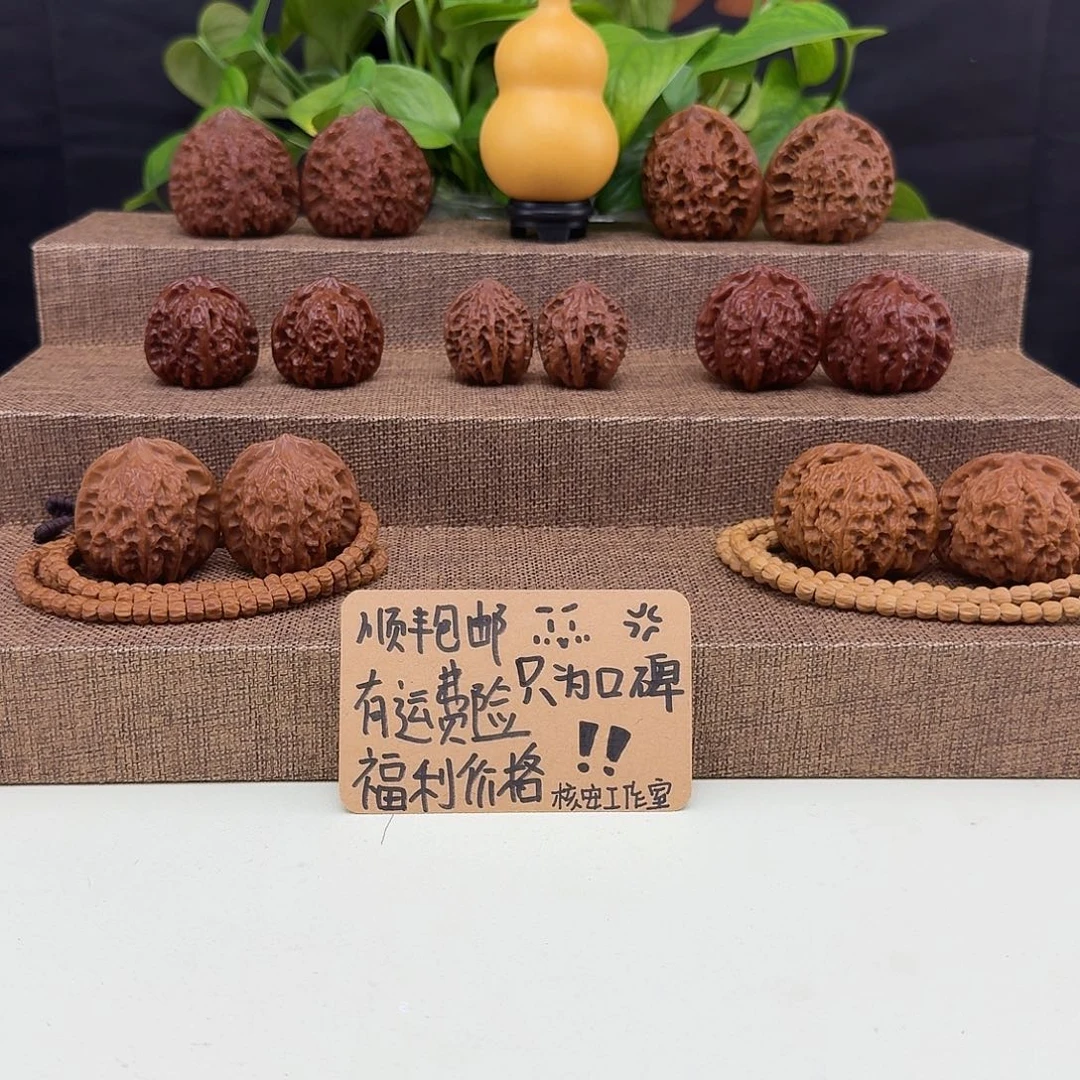 顺丰包邮
有运费险
只为口碑
!!
福利价格
核安工作室